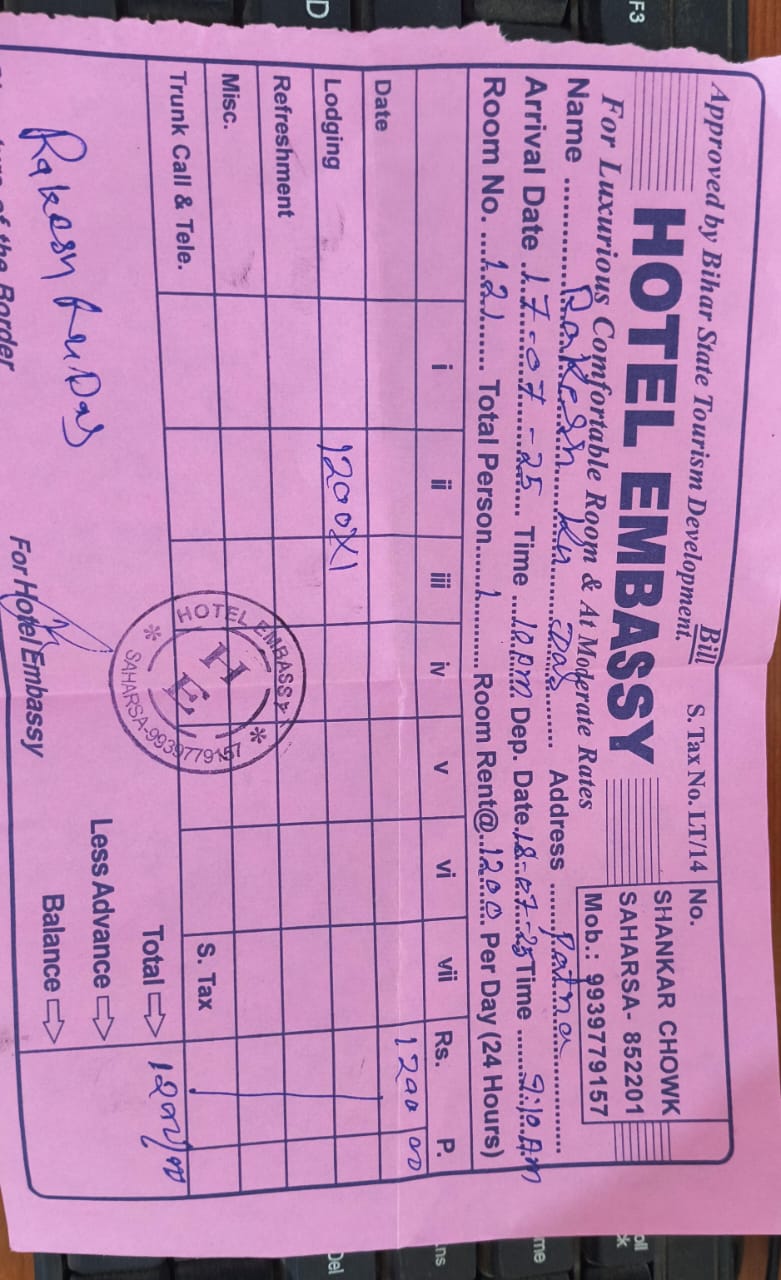 Approved by Bihar State Tourism Development. Bill S. Tax No. LT/14 No.
HOTEL EMBASSY
SHANKAR CHOWK
SAHARSA- 852201
Mob.: 9939779157
For Luxurious Comfortable Room & At Moderate Rates
Name Rakesh Ku Das Address Patna
Arrival Date 17-07-25 Time 10 P.M Dep. Date 18-07-25 Time 9:10 A.M
Room No. 121 Total Person 1 Room Rent@ 1200 Per Day (24 Hours)
i ii iii iv v vi vii Rs. P.
Date 1200 00
Lodging 1200X1
Refreshment
Misc.
Trunk Call & Tele. S. Tax
HOTEL EMBASSY
H E
SAHARSA-9939779157
Total 1200/00
Less Advance
Balance
Rakesh Ku Das
For Hotel Embassy
of the Border
F3
D
Del